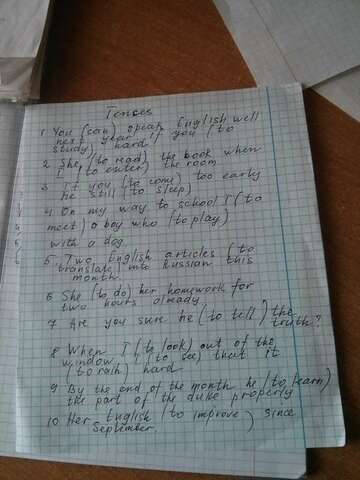 Tenses
1 You (can) speak English well
next year if you (to
study) hard
2 She (to read) the book when
I (to enter) the room
3 If you (to come) too early
he still (to sleep)
4 On my way to school I (to
meet) a boy who (to play)
with a dog
5. Two English articles (to
translate) into Russian this
month.
6 She (to do) her homework for
two hours already
7 Are you sure he (to tell) the
truth?
8 When I (to look) out of the
window, I (to see) that it
(to rain) hard
9 By the end of the month he (to learn)
the part of the duke properly
10 Her English (to improve) since
September